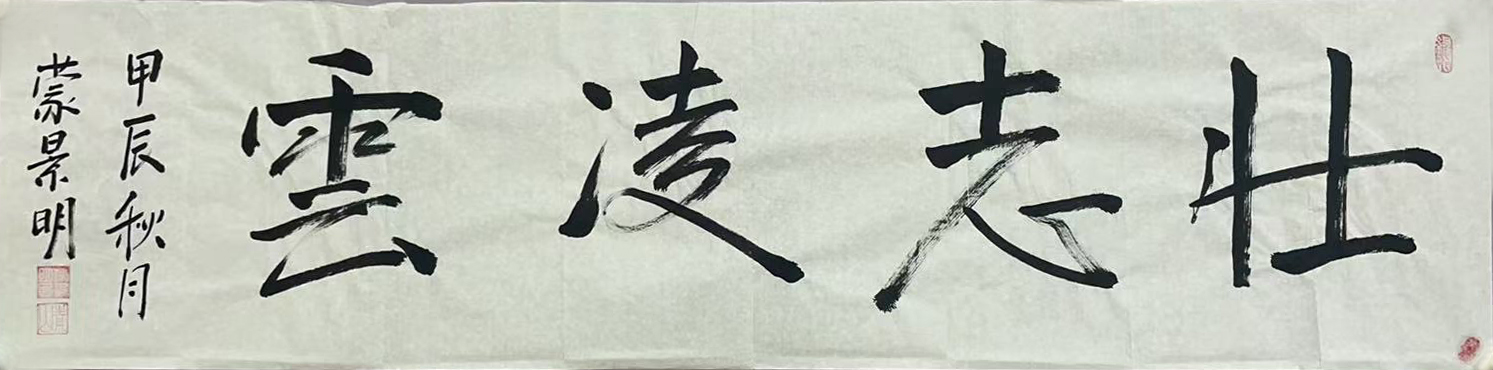 壯志凌雲
甲辰秋月
蒙景明